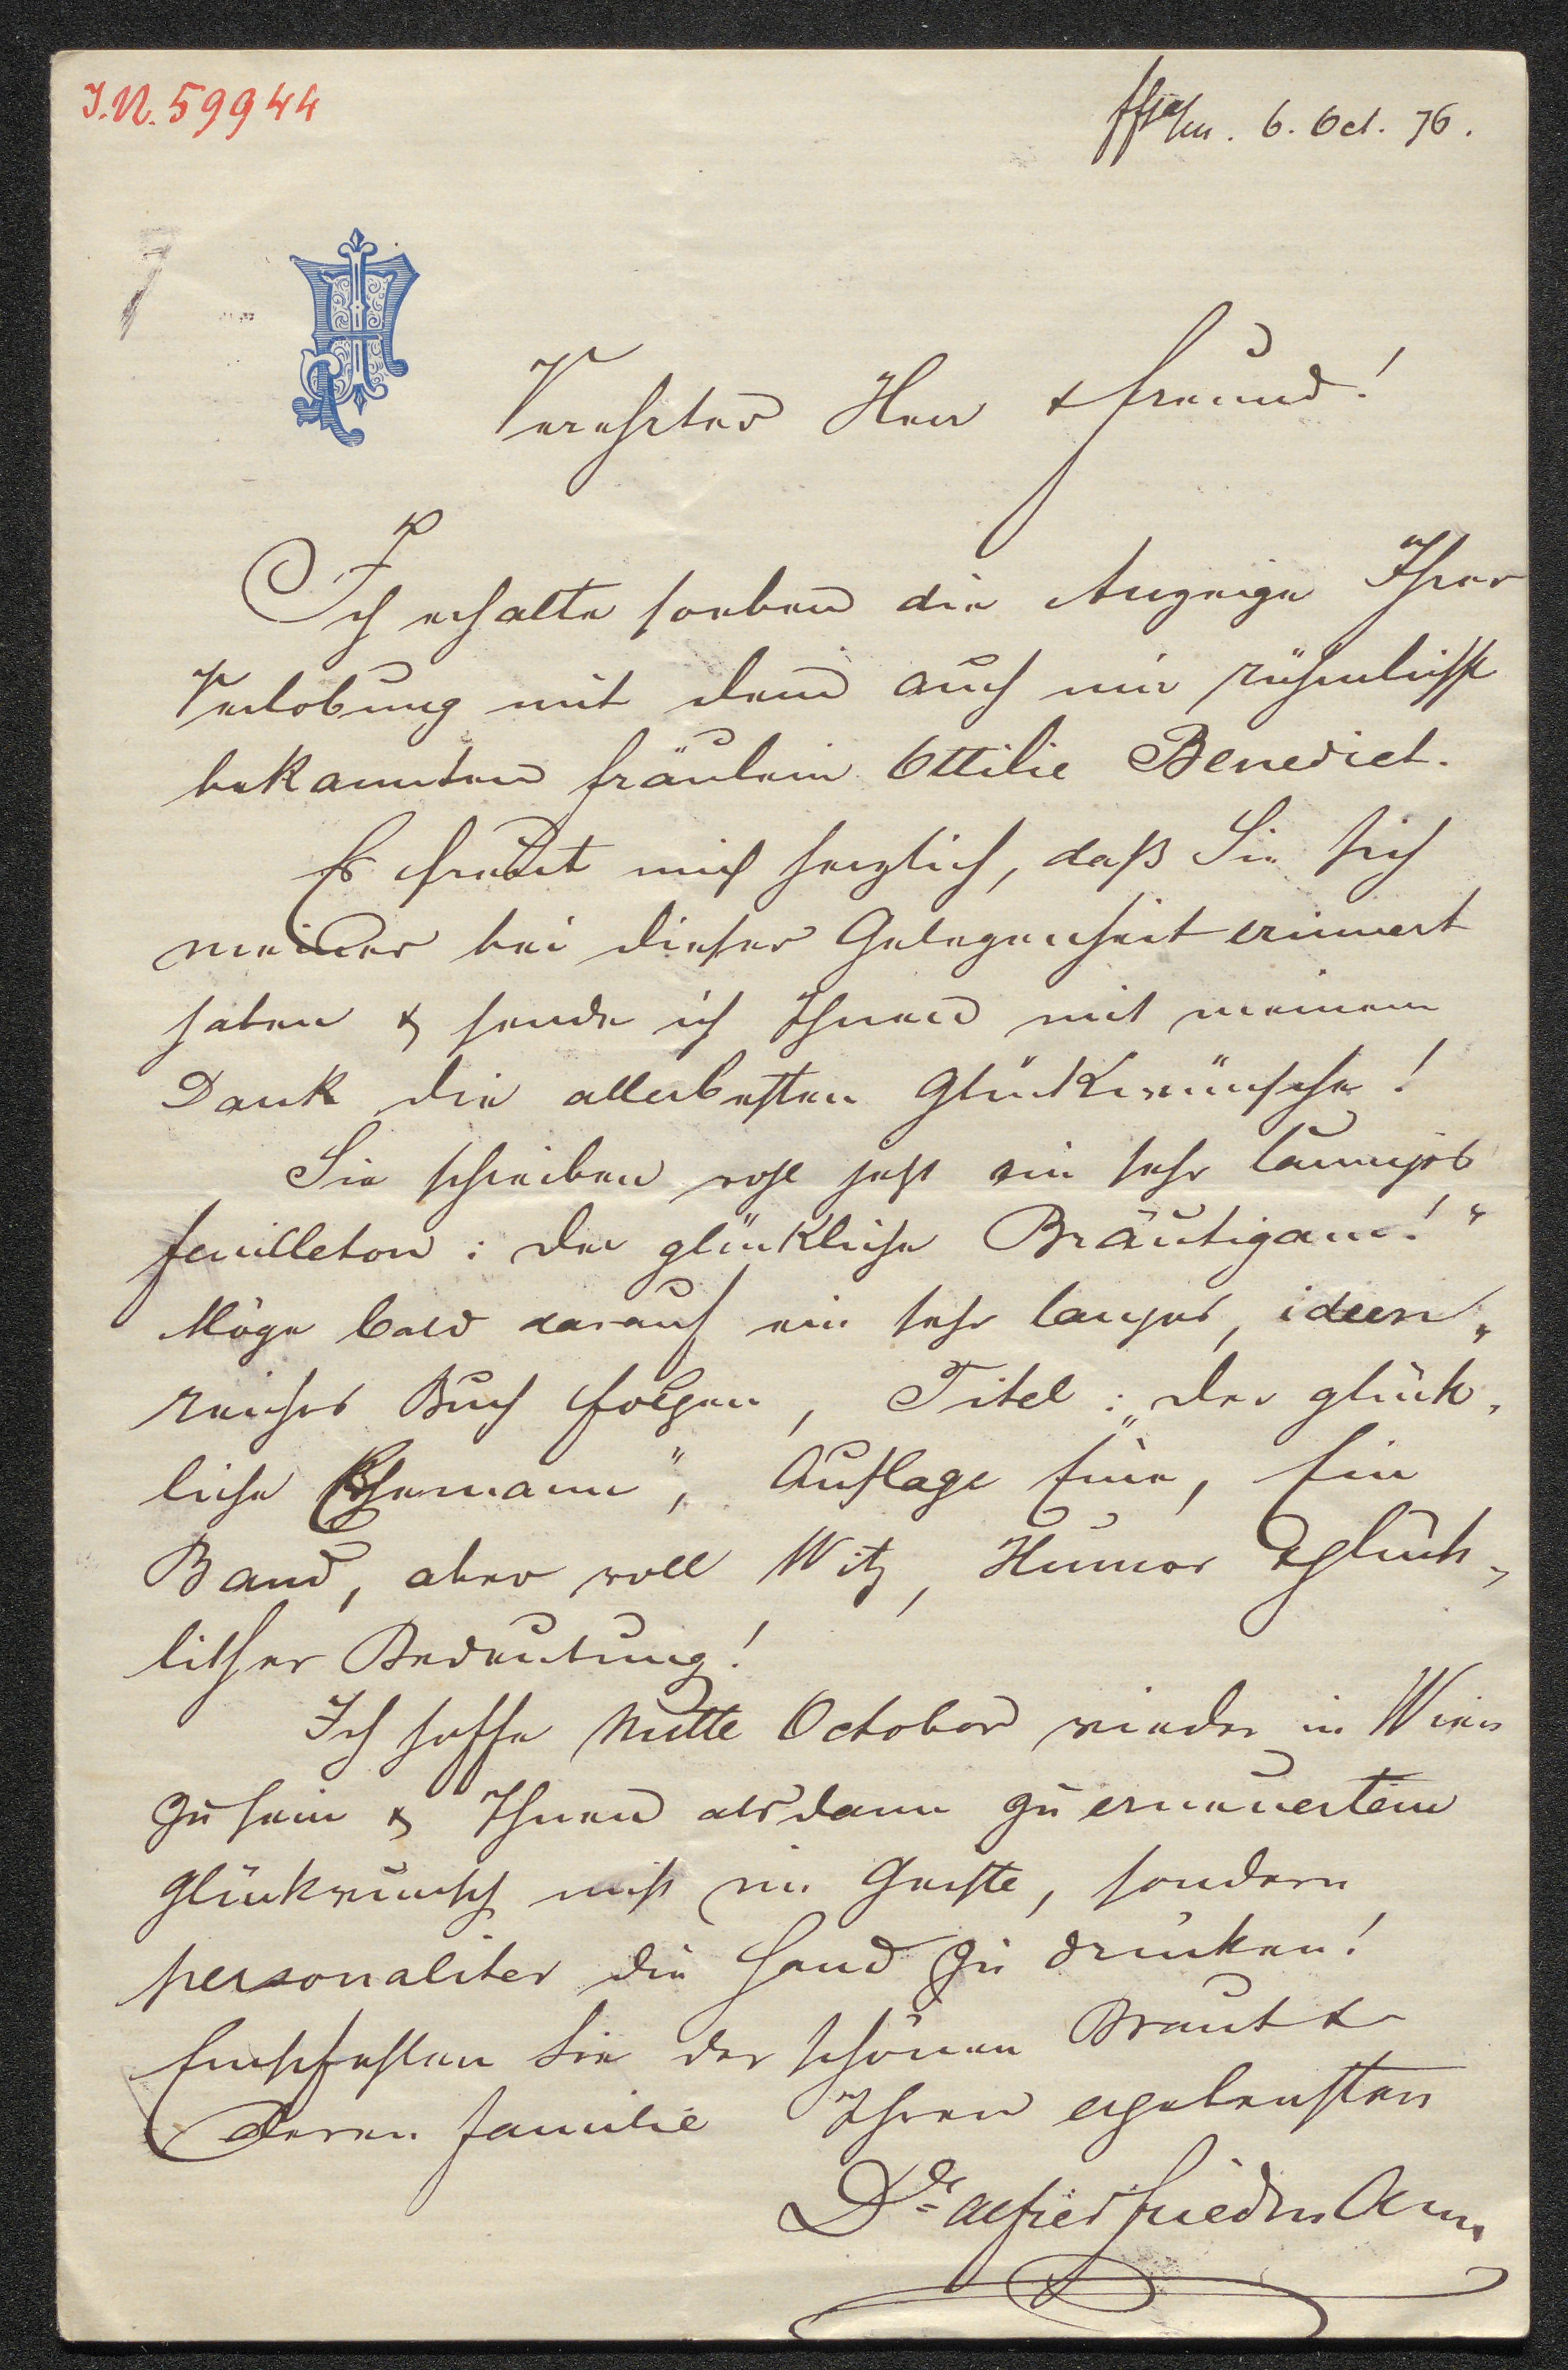 I.N. 59944
Ffm. 6. Oct. 76.
Verehrter Herr & Freund!
Ich erhalte soeben die Anzeige Ihrer
Verlobung mit dem auch mir rühmlichst
bekannten Fräulein Ottilie Benedict.
Es freut mich herzlich, daß Sie sich
meiner bei dieser Gelegenheit erinnert
haben & sende ich Ihnen mit meinem
Dank die allerbesten Glückwünsche!
Sie schreiben wohl jetzt ein sehr launiges
Feuilleton: der glückliche Bräutigam!"
Möge bald darauf ein sehr langes, ideen„
reiches Buch folgen, Titel: „der glück-
liche Ehemann", Auflage Eine, Ein
Band, aber voll Witz, Humor & glück-
licher Bedeutung!
Ich hoffe Mitte October wieder in Wien
zu sein & Ihnen alsdann zu erneuertem
Glückwunsch nicht im Geiste, sondern
personaliter die Hand zu drücken!
Empfehlen Sie der schönen Braut &
deren Familie Ihren ergebensten
Dr. Alfred Friedmann